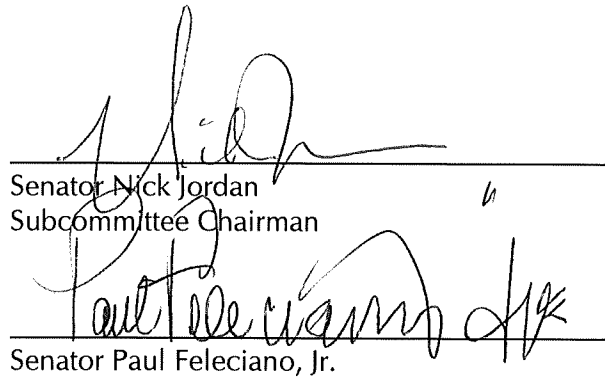 Senator Nick Jordan
Subcommittee Chairman
Paul Feleciano Jr
Senator Paul Feleciano, Jr.